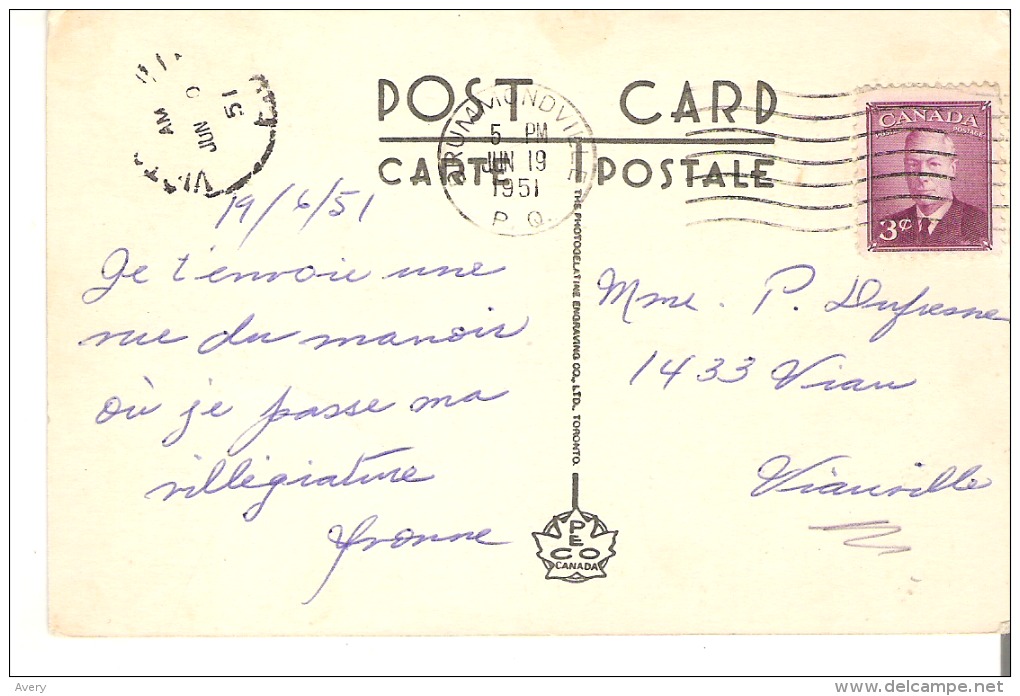 POST CARD
CARTE POSTALE
DRUMMONDVILLE
5 PM
JUN 19
1951
P. Q.
AM
JUN
51
CANADA
POSTES POSTAGE
3¢
19/6/51
Je t'envoie une
vue du manoir
où je passe ma
villégiature
Yvonne
Mme. P. Dufresne
1433 Viau
Viauville
THE PHOTOGELATINE ENGRAVING CO., LTD., TORONTO.
PECO
CANADA
Avery
delcampe.net